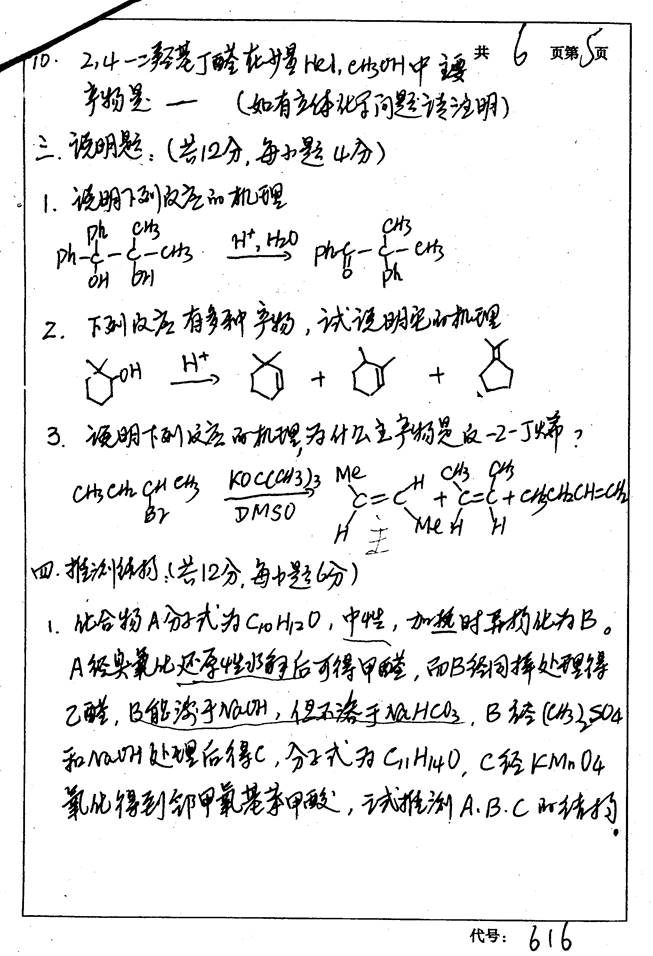 共 6 页第 5 页
10. 2,4-二羟基丁醛在少量HCl, CH3OH中主要
产物是 — (如有立体化学问题请注明)
三. 说明题: (共12分, 每小题4分)
1. 说明下列反应的机理
Ph CH3
Ph-C-C-CH3 H+, H2O Ph-C-C-CH3
OH OH O Ph
CH3
2. 下列反应有多种产物, 试说明它的机理
OH H+ + +
3. 说明下列反应的机理, 为什么主产物是反-2-丁烯?
CH3CH2CHCH3 KOC(CH3)3 Me H CH3 CH3
Br DMSO C=C + C=C + CH3CH2CH=CH2
H Me H H
主
四. 推测结构: (共12分, 每小题6分)
1. 化合物A分子式为C10H12O, 中性, 加热时异构化为B。
A经臭氧化还原性水解后可得甲醛, 而B经同样处理得
乙醛, B能溶于NaOH, 但不溶于NaHCO3, B经(CH3)2SO4
和NaOH处理后得C, 分子式为C11H14O, C经KMnO4
氧化得到邻甲氧基苯甲酸, 试推测A.B.C的结构.
代号: 616